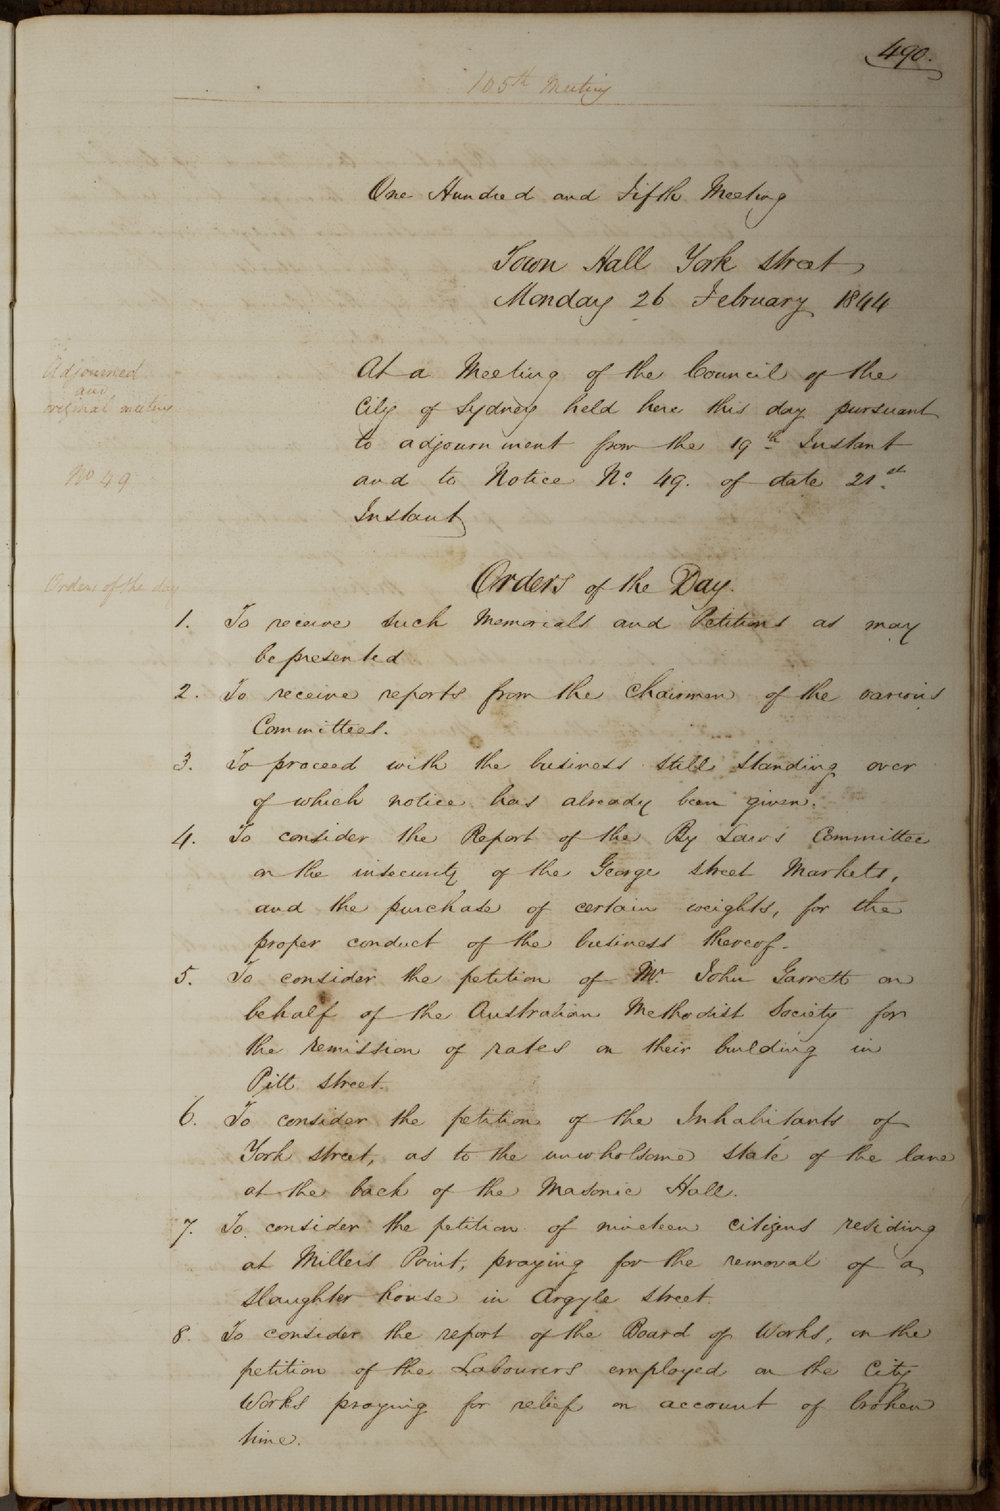 490.
105th Meeting
One Hundred and Fifth Meeting
Town Hall York Street
Monday 26 February 1844
Adjourned
and
original meeting
At a Meeting of the Council of the
City of Sydney held here this day pursuant
to adjournment from the 19th Instant
No 49
and to Notice No. 49. of date 21st
Instant
Orders of the day
Orders of the Day.
1. To receive such Memorials and Petitions as may
be presented
2. To receive reports from the Chairmen of the various
Committees.
3. To proceed with the business still standing over
of which notice has already been given.
4. To consider the Report of the By Laws Committee
on the insecurity of the George Street Markets,
and the purchase of certain weights, for the
proper conduct of the business thereof.
5. To consider the petition of Mr. John Garrett on
behalf of the Australian Methodist Society for
the remission of rates on their building in
Pitt street.
6. To consider the petition of the Inhabitants of
York street, as to the unwholsome state of the lane
at the back of the Masonic Hall.
7. To consider the petition of nineteen citizens residing
at Millers Point, praying for the removal of a
slaughter house in Argyle street.
8. To consider the report of the Board of Works, on the
petition of the Labourers employed on the City
Works praying for relief on account of broken
time.